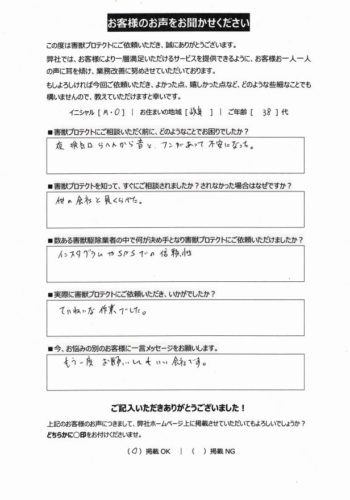 お客様のお声をお聞かせください
この度は害獣プロテクトにご依頼いただき、誠にありがとうございます。
弊社では、お客様により一層満足いただけるサービスを提供できるように、お客様お一人一人
の声に耳を傾け、業務改善に努めさせていただいております。
もしよろしければ今回ご依頼いただき、よかった点、嬉しかった点など、どのような些細なことでも
構いませんので、教えていただけますと幸いです。
イニシャル [ M・O ] | お住まいの地域 [ ] | ご年齢 [ 38 ] 代
■害獣プロテクトにご相談いただく前に、どのようなことでお困りでしたか?
夜 換気口らへんから音と、フンがあって不安になった。
■害獣プロテクトを知って、すぐにご相談されましたか?されなかった場合はなぜですか?
他の会社と見くらべた。
■数ある害獣駆除業者の中で何が決め手となり害獣プロテクトにご依頼いただけましたか?
インスタグラムやSNSでの信頼性
■実際に害獣プロテクトにご依頼いただき、いかがでしたか?
ていねいな作業でした。
■今、お悩みの別のお客様に一言メッセージをお願いします。
もう一度お願いしてもいい会社です。
ご記入いただきありがとうございました!
上記のお客様のお声につきまして、弊社ホームページ上に掲載させていただいてもよろしいでしょうか?
どちらかに〇印をお付けくださいませ。
(〇) 掲載OK | ( ) 掲載NG